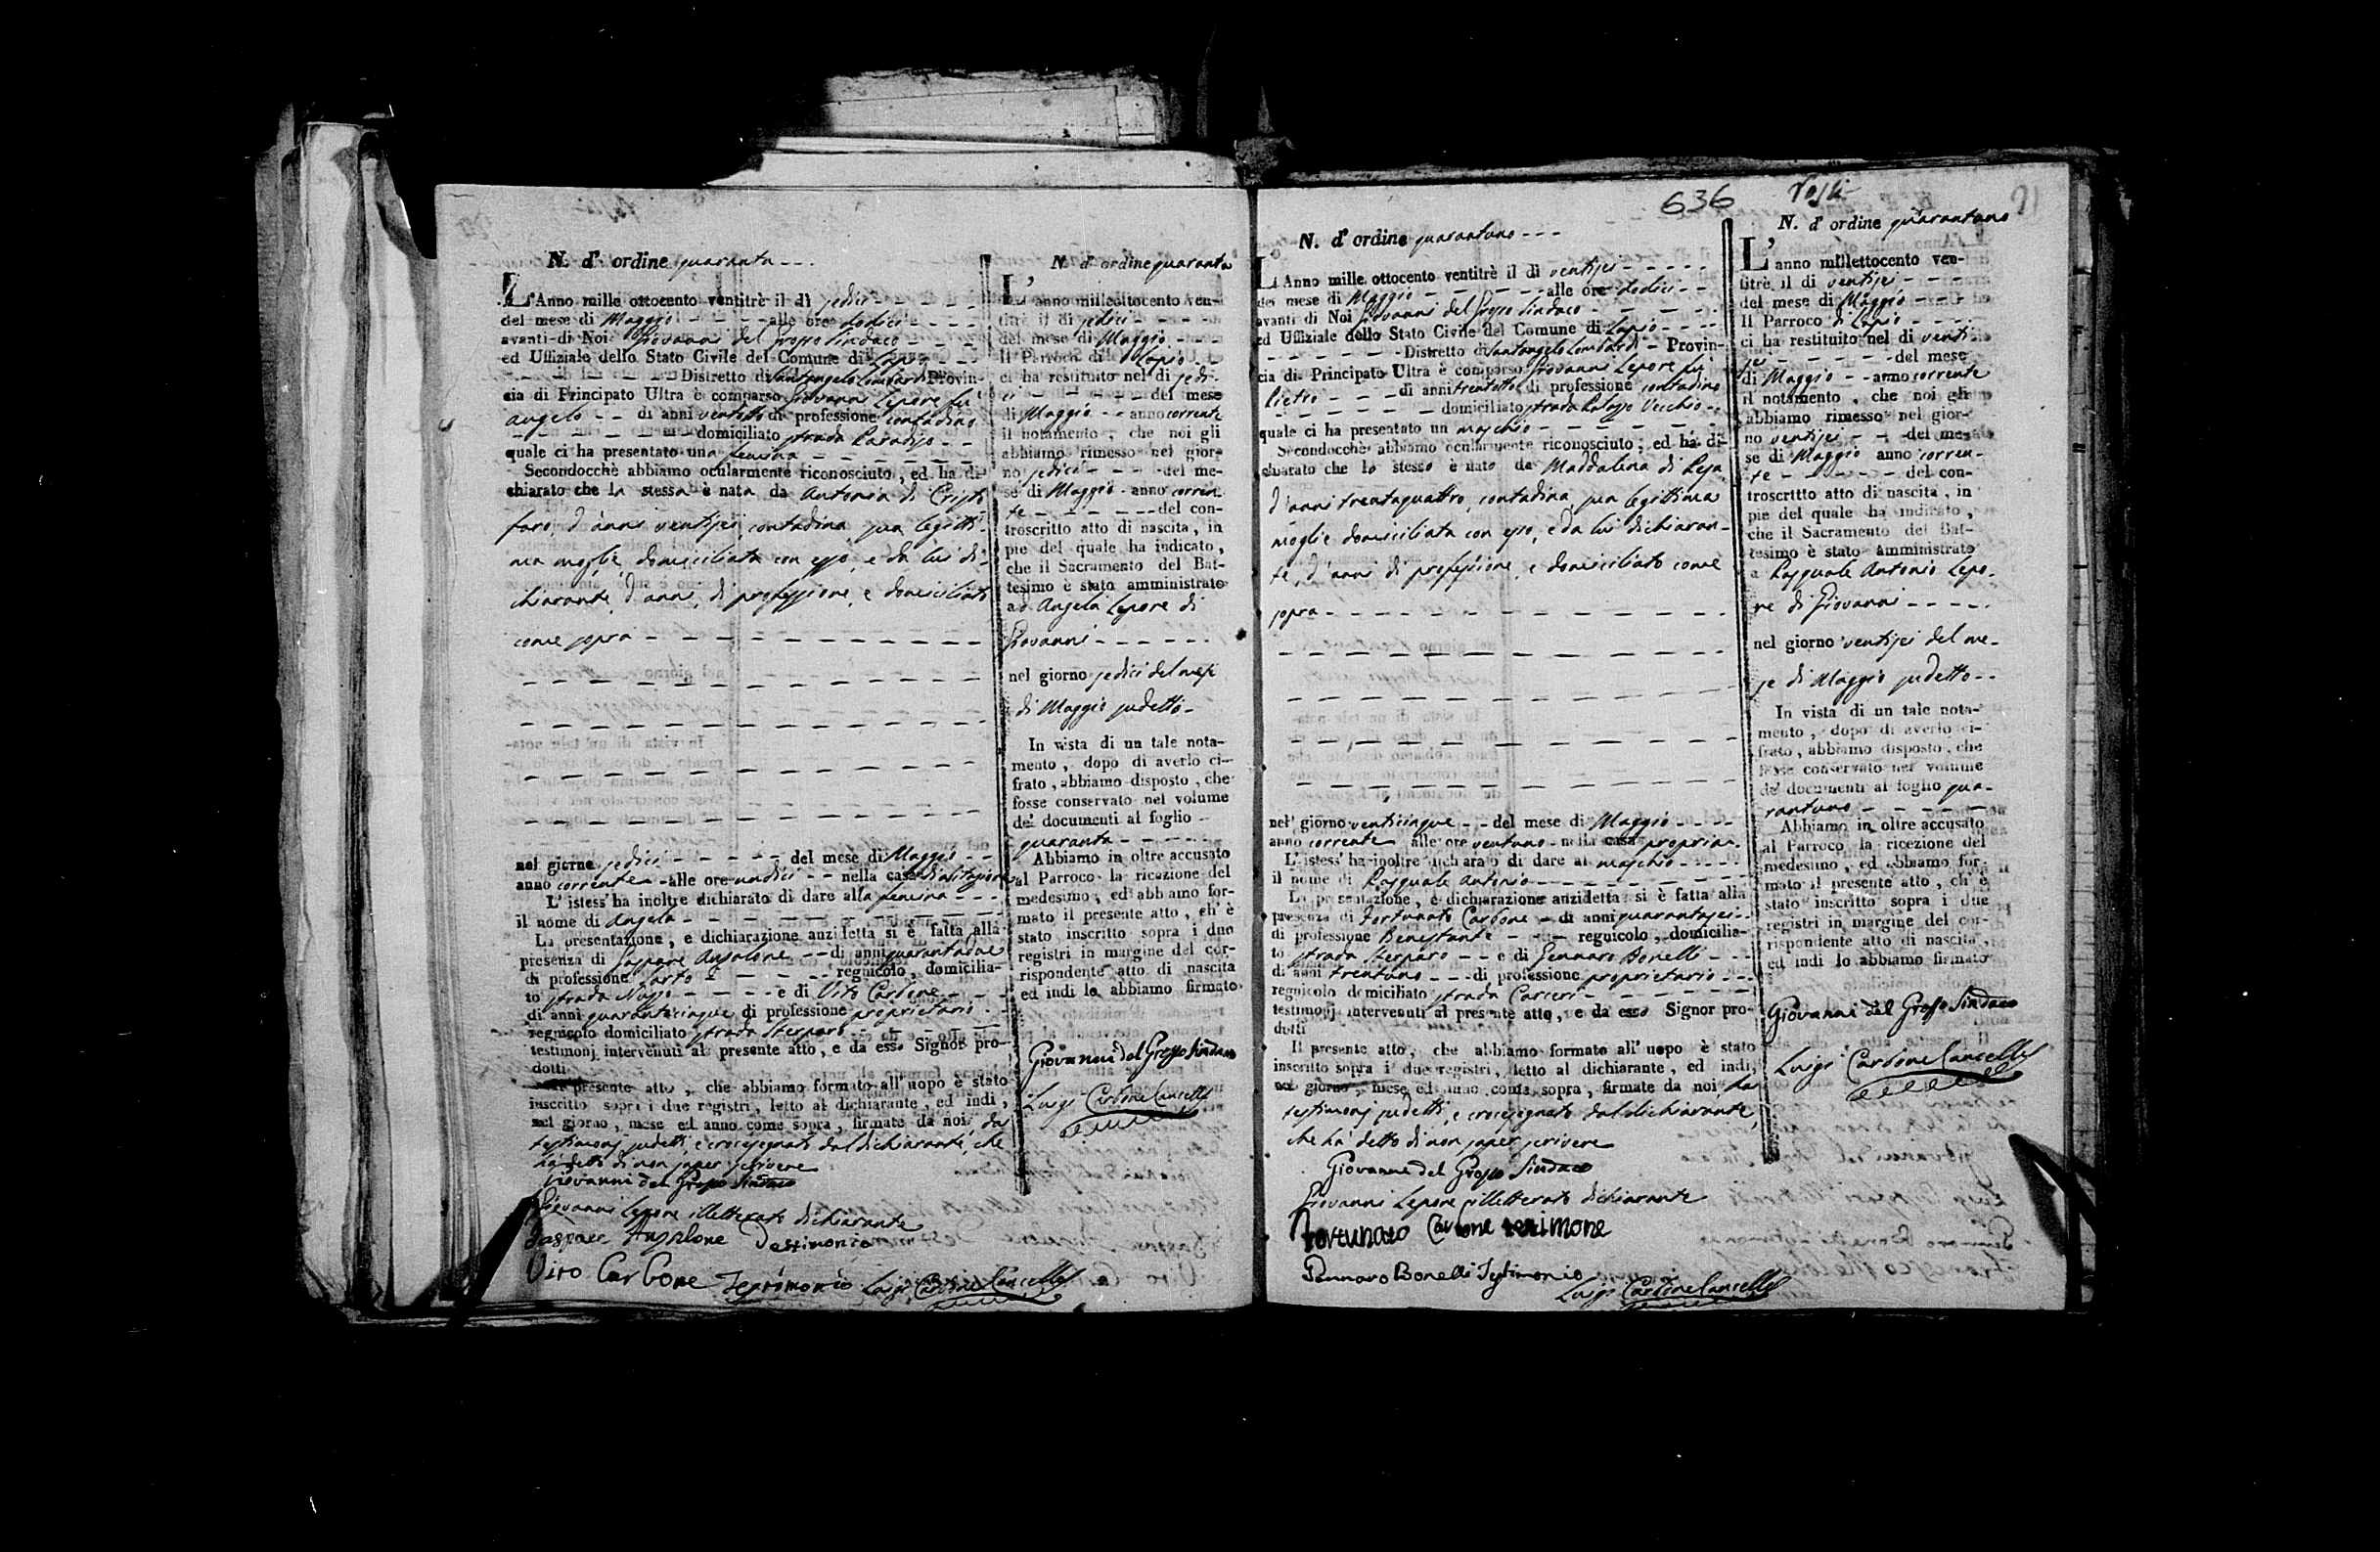 N. d' ordine quaranta
L'Anno mille ottocento ventitrè il dì sedici
del mese di Maggio alle ore dodici
avanti di Noi Giovanni del Grosso Sindaco
ed Uffiziale dello Stato Civile del Comune di Lapio
Distretto di Santangelo Lombardi Provin-
cia di Principato Ultra è comparso Giovanni Lepore fu
Angelo di anni ventotto di professione contadino
domiciliato strada Paradiso
quale ci ha presentato una femina
Secondocchè abbiamo ocularmente riconosciuto, ed ha di-
chiarato che la stessa è nata da Antonia di Cristo
faro, d'anni ventisei, contadina, sua legitti-
ma moglie domiciliata con esso, e da lui di-
chiarante, d'anni, di professione, e domiciliato
come sopra
nel giorno sedici del mese di Maggio
anno corrente alle ore undici nella casa di abitazione
L' istess' ha inoltre dichiarato di dare alla femina
il nome di Angela
La presentazione, e dichiarazione anzidetta si è fatta alla
presenza di Gaspare Anzalone di anni quarantadue
di professione Sarto regnicolo, domicilia-
to strada e di Vito Carbone
di anni quarantacinque di professione proprietario
regnicolo domiciliato strada Sterparo
testimonj intervenuti al presente atto, e da esso Signor pro-
dotti
Il presente atto, che abbiamo formato all' uopo è stato
inscritto sopra i due registri, letto al dichiarante, ed indi,
nel giorno, mese ed anno come sopra, firmate da noi, da
testimonj sudetti, e crocesegnato dal dichiarante, che
ha detto di non saper scrivere
Giovanni del Grosso Sindaco
Giovanni Lepore illetterato dichiarante
Gaspare Anzalone Testimonio
Vito Carbone Testimonio Luigi Carbone Cancell
N. d' ordine quaranta
L' anno milleottocento ven-
titrè il dì sedici
del mese di Maggio
Il Parroco di Lapio
ci ha restituito nel dì sedi-
ci del mese
di Maggio anno corrente
il notamento, che noi gli
abbiamo rimesso nel gior-
no sedici del me-
se di Maggio anno corren-
te del con-
troscritto atto di nascita, in
pie del quale ha indicato,
che il Sacramento del Bat-
tesimo è stato amministrato
ad Angela Lepore di
Giovanni
nel giorno sedici del mese
di Maggio sudetto
In vista di un tale nota-
mento, dopo di averlo ci-
frato, abbiamo disposto, che
fosse conservato nel volume
de' documenti al foglio
quaranta
Abbiamo in oltre accusato
al Parroco la ricezione del
medesimo, ed abbiamo for-
mato il presente atto, ch' è
stato inscritto sopra i due
registri in margine del cor-
rispondente atto di nascita
ed indi lo abbiamo firmato
Giovanni del Grosso Sindaco
Luigi Carbone Cancell
636
21
N. d' ordine quarantuno
L' Anno mille ottocento ventitrè il dì ventisei
del mese di Maggio alle ore dodici
avanti di Noi Giovanni del Grosso Sindaco
ed Uffiziale dello Stato Civile del Comune di Lapio
Distretto di Santangelo Lombardi Provin-
cia di Principato Ultra è comparso Giovanni Lepore fu
Pietro di anni trentotto di professione contadino
domiciliato strada Palazzo Vecchio
quale ci ha presentato un maschio
Secondocchè abbiamo ocularmente riconosciuto, ed ha di-
chiarato che lo stesso è nato da Maddalena di Resa
d'anni trentaquattro, contadina, sua legittima
moglie domiciliata con esso, e da lui dichiaran-
te, d'anni di professione, e domiciliato come
sopra
nel giorno venticinque del mese di Maggio
anno corrente alle ore ventuno nella casa propria
L' istess' ha inoltre dichiarato di dare al maschio
il nome di Pasquale Antonio
La presentazione, e dichiarazione anzidetta si è fatta alla
presenza di Fortunato Carbone di anni quarantasei
di professione Benestante regnicolo, domicilia-
to strada Sterparo e di Gennaro Bonelli
di anni trentuno di professione proprietario
regnicolo domiciliato strada Carceri
testimonj intervenuti al presente atto, e da esso Signor pro-
dotti
Il presente atto, che abbiamo formato all' uopo è stato
inscritto sopra i due registri, letto al dichiarante, ed indi,
nel giorno, mese ed anno come sopra, firmate da noi, da
testimonj sudetti, e crocesegnato dal dichiarante,
che ha detto di non saper scrivere
Giovanni del Grosso Sindaco
Giovanni Lepore illetterato dichiarante
Fortunato Carbone testimone
Gennaro Bonelli Testimonio
Luigi Carbone Cancell
N. d' ordine quarantuno
L' anno millettocento ven-
titrè il di ventisei
del mese di Maggio
Il Parroco di Lapio
ci ha restituito nel di venti-
sei del mese
di Maggio anno corrente
il notamento, che noi gli
abbiamo rimesso nel gior-
no ventisei del me-
se di Maggio anno corren-
te del con-
troscritto atto di nascita, in
pie del quale ha indicato,
che il Sacramento del Bat-
tesimo è stato amministrato
a Pasquale Antonio Lepo-
re di Giovanni
nel giorno ventisei del me-
se di Maggio sudetto
In vista di un tale nota-
mento, dopo di averlo ci-
frato, abbiamo disposto, che
fosse conservato nel volume
de' documenti al foglio qua-
rantuno
Abbiamo in oltre accusato
al Parroco la ricezione del
medesimo, ed abbiamo for-
mato il presente atto, ch' è
stato inscritto sopra i due
registri in margine del cor-
rispondente atto di nascita,
ed indi lo abbiamo firmato
Giovanni del Grosso Sindaco
Luigi Carbone Cancell